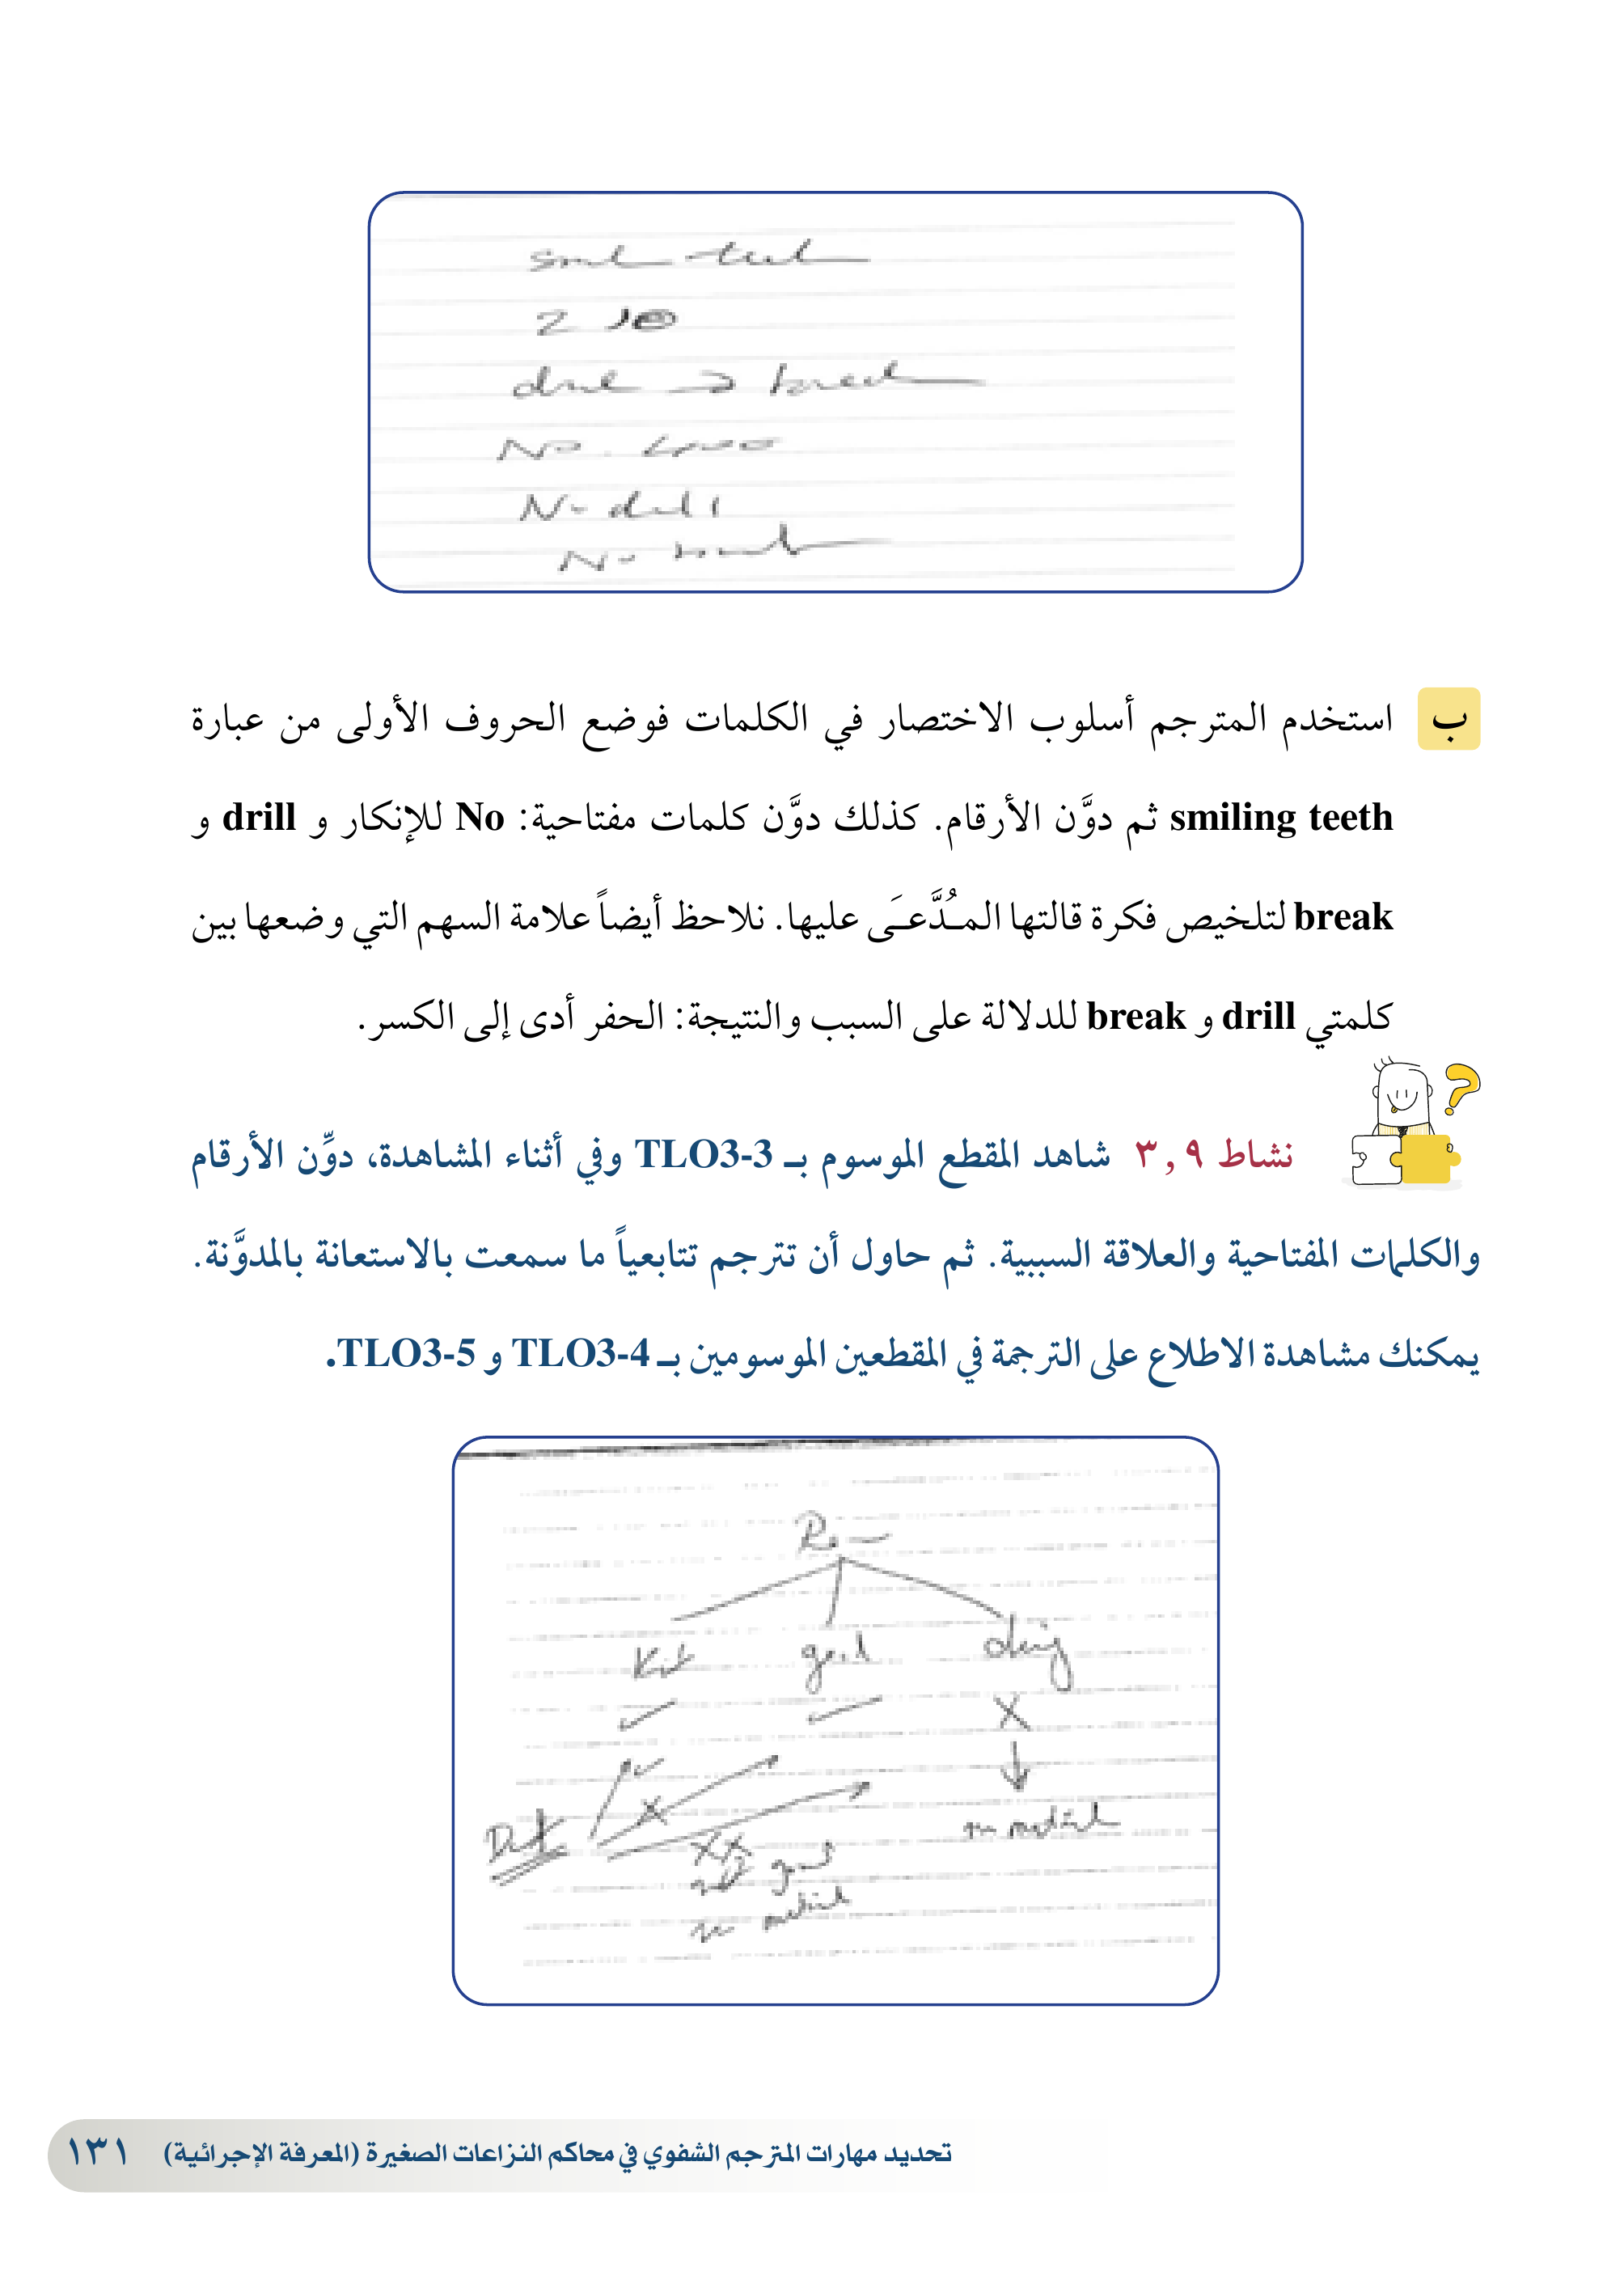 2 10
No.
ب استخدم المترجم أسلوب الاختصار في الكلمات فوضع الحروف الأولى من عبارة
smiling teeth ثم دوَّن الأرقام. كذلك دوَّن كلمات مفتاحية: No للإنكار و drill و
break لتلخيص فكرة قالتها المـُدَّعـَى عليها. نلاحظ أيضاً علامة السهم التي وضعها بين
كلمتي drill و break للدلالة على السبب والنتيجة: الحفر أدى إلى الكسر.
نشاط ٣,٩ شاهد المقطع الموسوم بـ TLO3-3 وفي أثناء المشاهدة، دوِّن الأرقام
والكلمات المفتاحية والعلاقة السببية. ثم حاول أن تترجم تتابعياً ما سمعت بالاستعانة بالمدوَّنة.
يمكنك مشاهدة الاطلاع على الترجمة في المقطعين الموسومين بـ TLO3-4 و TLO3-5.
Kit
تحديد مهارات المترجم الشفوي في محاكم النزاعات الصغيرة (المعرفة الإجرائية) ١٣١